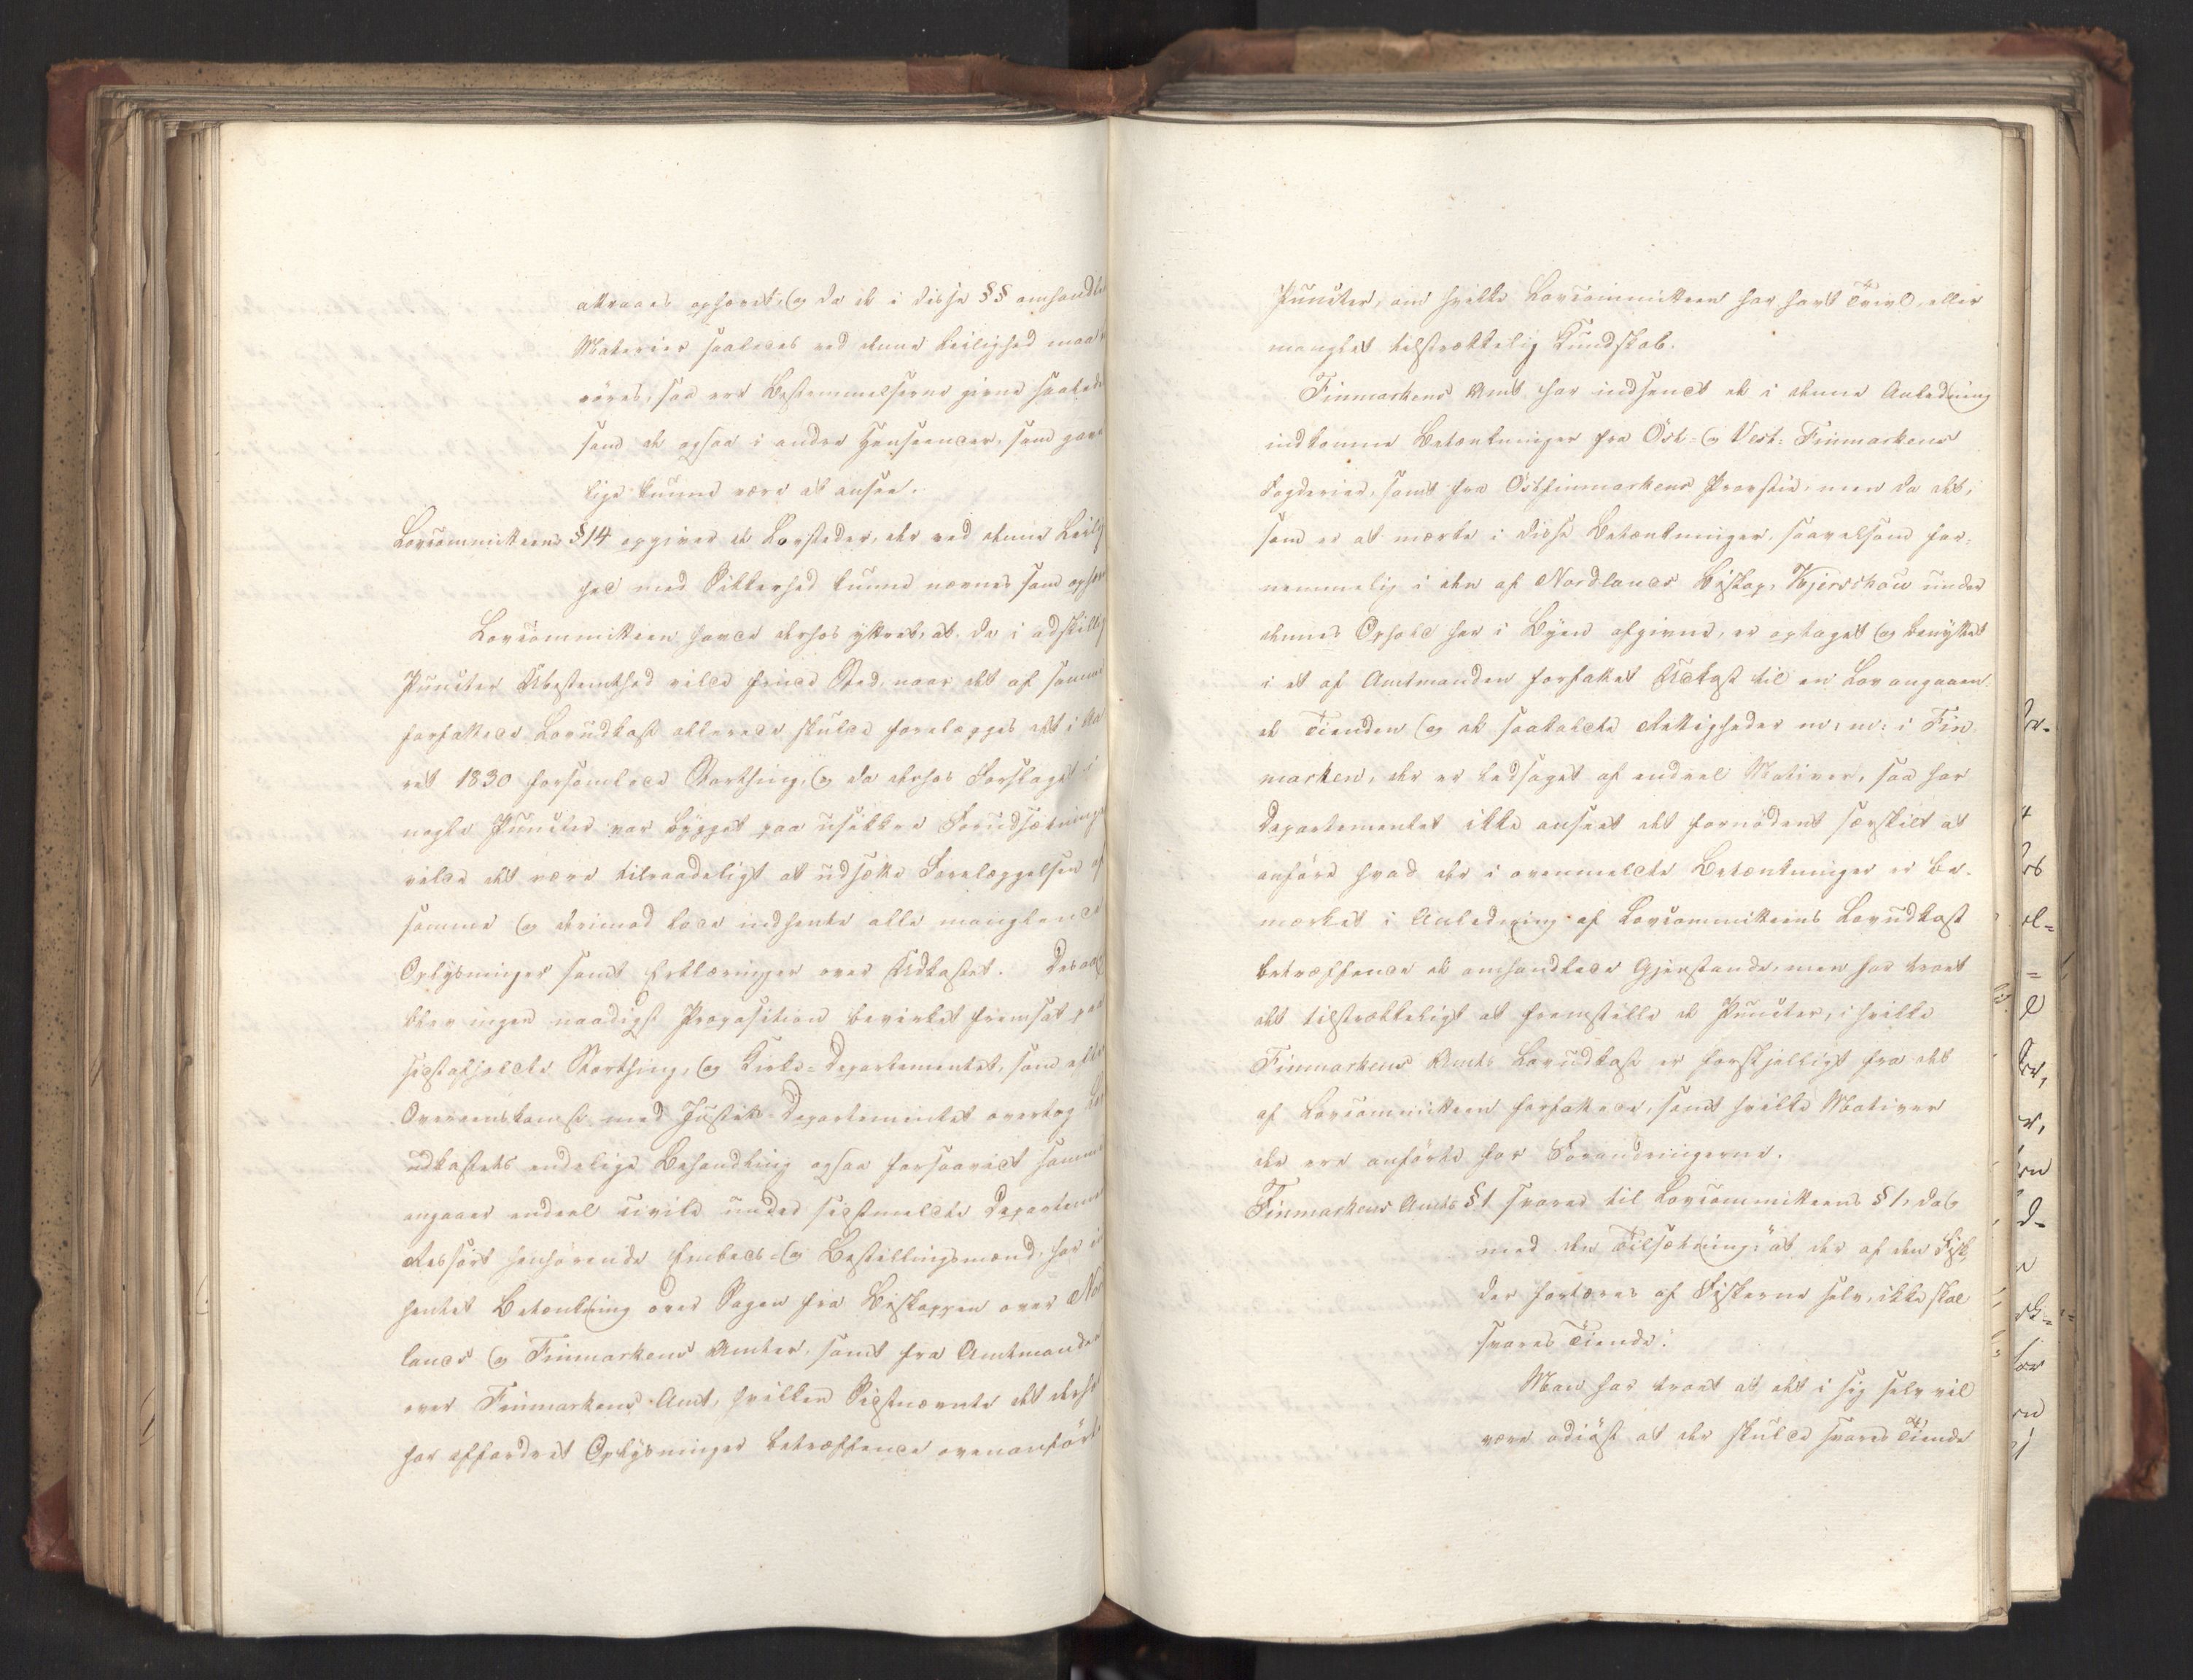 attraaes ophævet, og da de i disse §§ omhandle
Materier saaledes ved denne Leilighed maa
röres, saa ere Bestemmelserne givne saalede
som de ogsaa i andre Henseender, som gavn
lige kunne være at ansee.
Lovcommitteens §14 opgiver de Lovsteder, der ved denne Leilig
hed med Sikkerhed kunne nævnes som ophæv
Lovcommitteen havde derhos yttret, at da i adskillig
Puncter Ubestemthed vilde finde Sted, naar det af samme
forfattede Lovudkast allerede skulde forelægges det i Aa
ret 1830 forsamlede Storthing, og da derhos Forslaget i
nogle Puncter var bygget paa usikkre Forudsætninge
vilde det være tilraadeligt at udsætte Forelæggelsen af
samme og derimod lade indhente alle manglende
Oplysninger samt Erklæringer over Udkastet. Desaarsag
blev ingen naadigst Proposition bevirket fremsat paa
sidstafholdte Storthing, og Kirke-Departementet, som efter
Overeenskomst med Justits-Departementet overtog Lov
udkastets endelige Behandling ogsaa forsaavidt samme
angaaer endeel civile under sidstmeldte Departements
Ressort henhörende Embeds- og Bestillingsmænd, har ind
hentet Betænkning over Sagen fra Biskoppen over Nord
lands og Finmarkens Amter, samt fra Amtmanden
over Finmarkens Amt, hvilken Sidstnævnte det derhos
har affordret Oplysninger betræffende ovenanförte
Puncter, om hvilke Lovcommitteen har havt Tvivl, eller
manglet tilstrækkelig Kundskab.
Finmarkens Amt har indsendt de i denne Anledning
indkomne Betænkninger fra Öst- og Vest-Finmarkens
Fogderier, samt fra Östfinmarkens Provstie, men da det,
som er at mærke i disse Betænkninger, saavelsom for-
nemmelig i den af Nordlands Biskop, Kjerschow under
dennes Ophold her i Byen afgivne, er optaget og benyttet
i et af Amtmanden forfattet Udkast til en Lov angaaen
de Tienden og de saakaldte Rettigheder m: m: i Fin
marken, der er ledsaget af endeel Motiver, saa har
Departementet ikke anseet det fornödent særskilt at
anföre hvad der i ovenmeldte Betænkninger er be-
mærket i Anledning af Lovcommitteens Lovudkast
betræffende de omhandlede Gjenstande, men har troet
det tilstrækkeligt at fremstille de Puncter, i hvilke
Finmarkens Amts Lovudkast er forskjelligt fra det
af Lovcommitteen forfattede, samt hvilke Motiver
der ere anförte for Forandringerne.
Finmarkens Amts §1 svarer til Lovcommitteens §1, dog
med den Tilsætning: "at der af den Fisk,
der fortæres af Fiskerne selv, ikke skal
svares Tiende."
Man har troet at det i sig selv vil
være odiöst, at der skulde svares Tiende